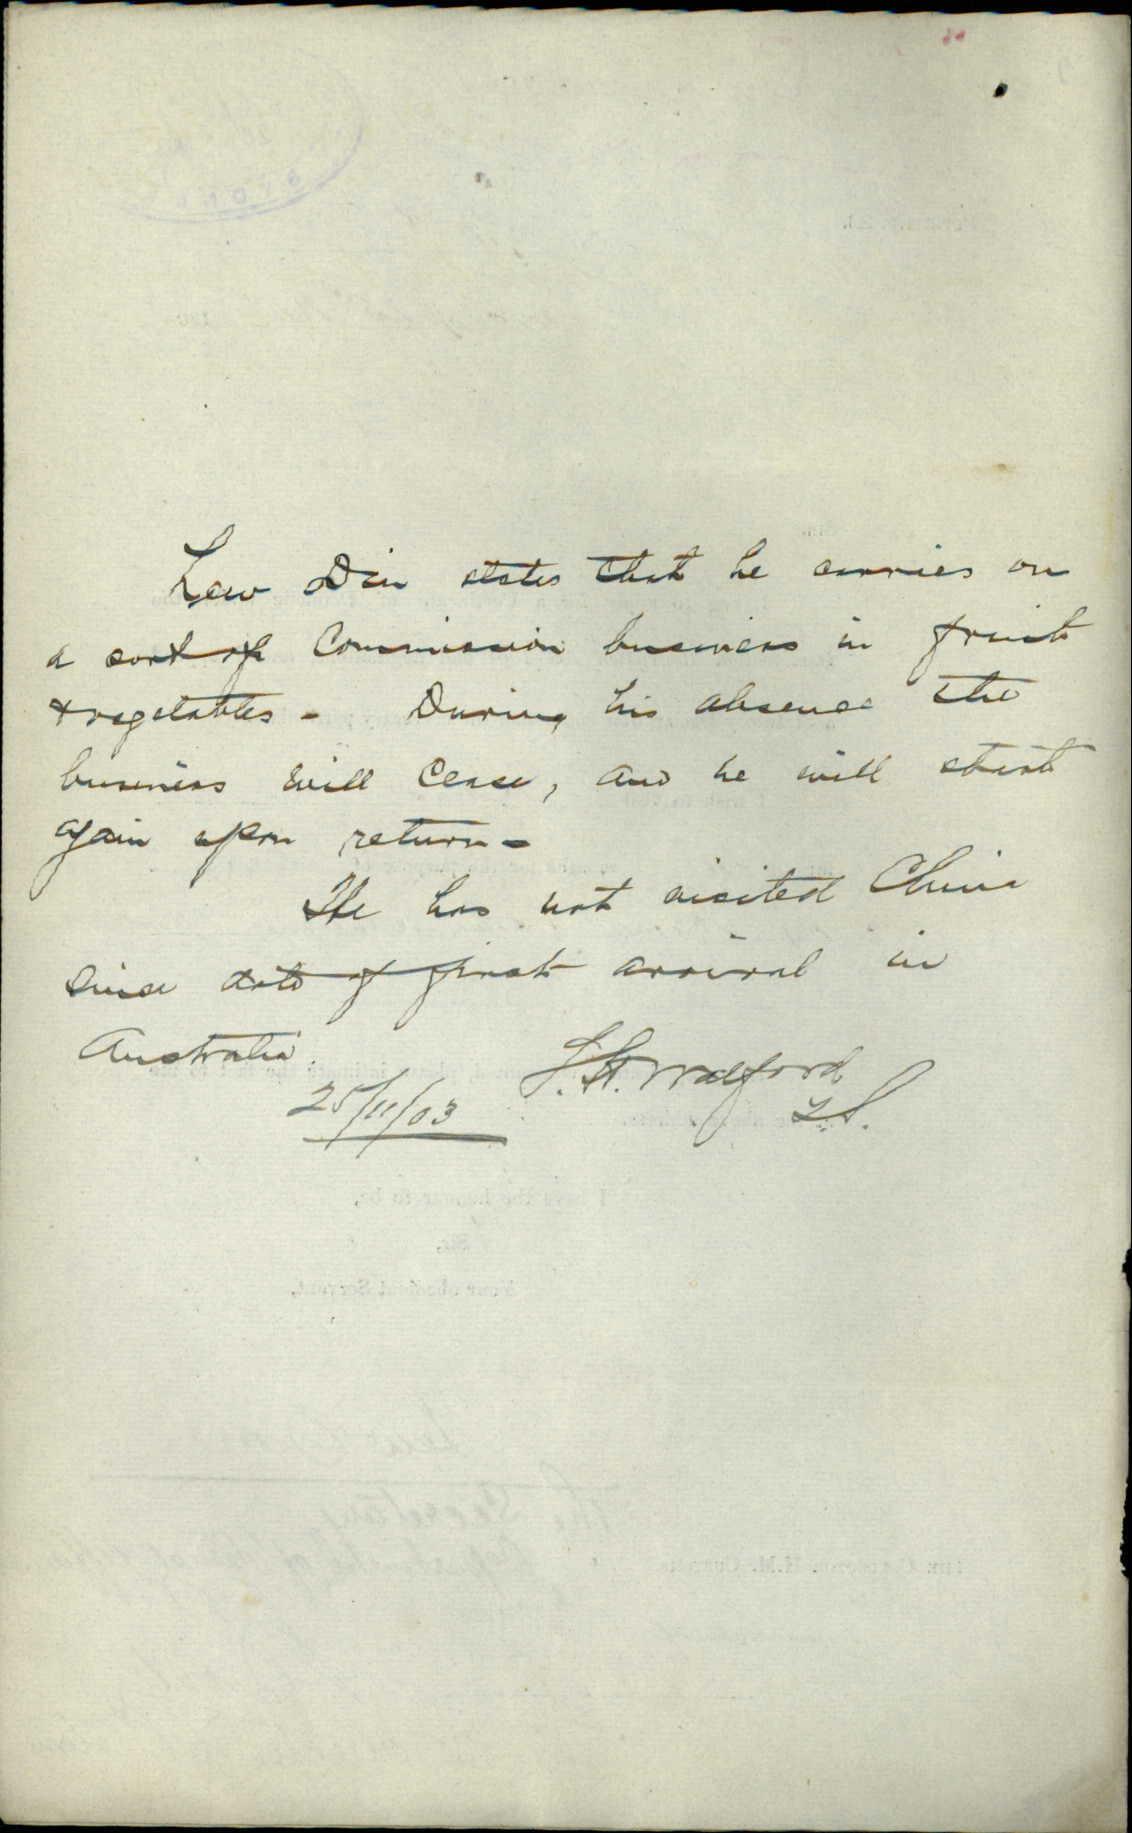 Lew Din states that he carries on
a sort of Commission business in fruit
& vegetables - During his absence the
business will cease, and he will start
again upon return -
He has not visited China
since date of first arrival in
Australia.
25/11/03